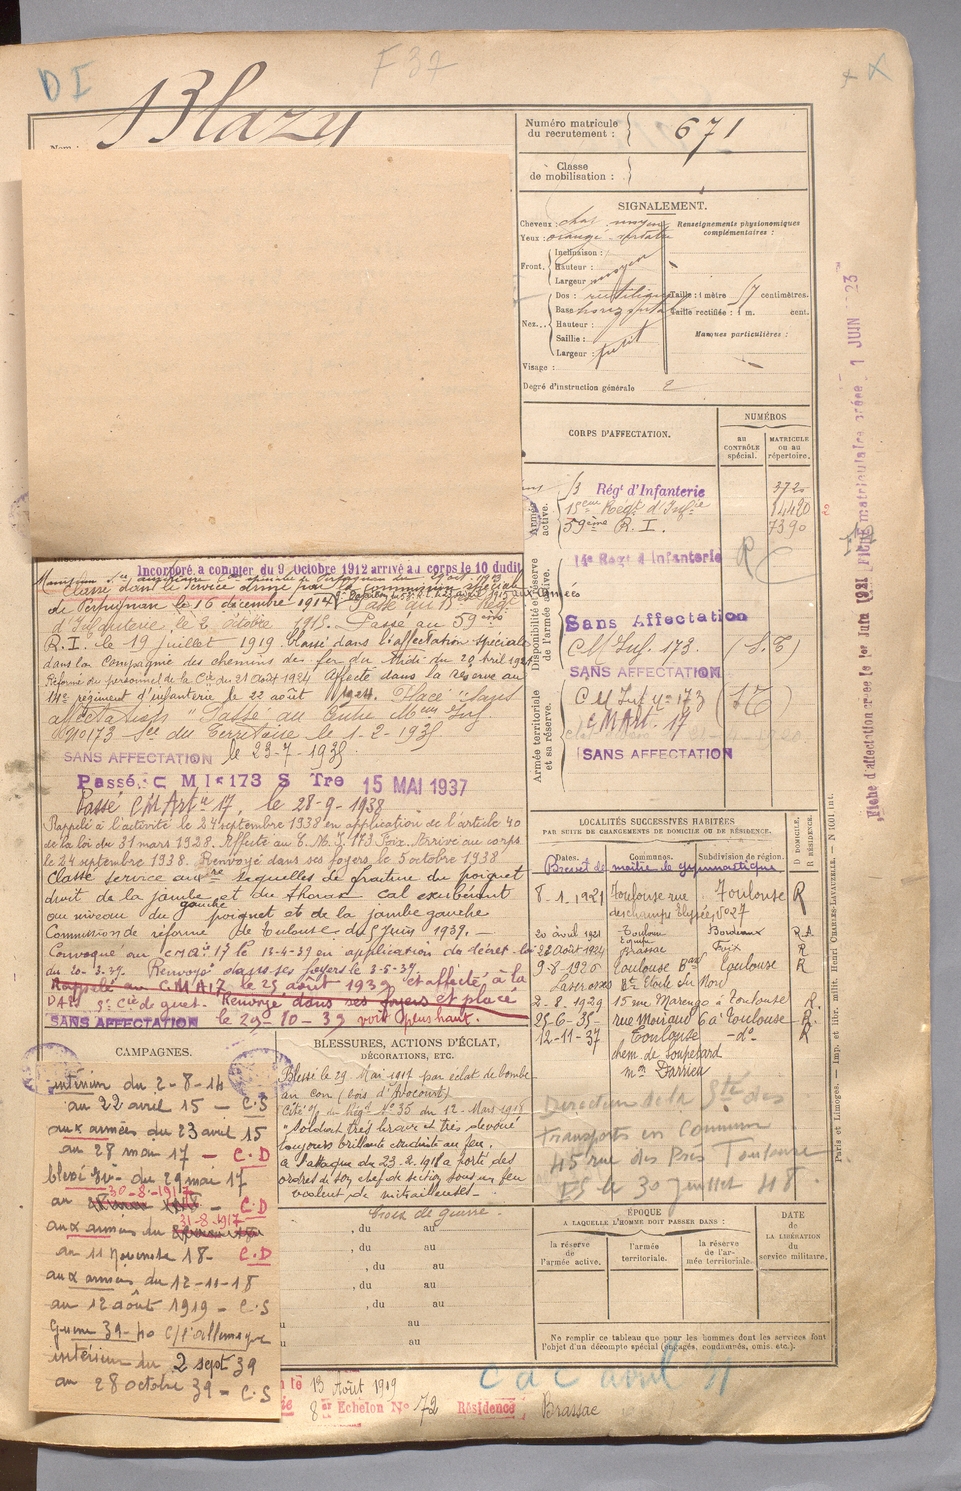 D I
F 37
X
Blazy
Numéro matricule
du recrutement :
671
Classe
de mobilisation :
SIGNALEMENT.
Cheveux : chat. moyen
Yeux : orangé
Renseignements physionomiques
complémentaires :
Front.
Inclinaison :
Hauteur :
Largeur : moyen
Nez...
Dos : rectiligne
Base : horizontal
Hauteur :
Saillie :
Largeur : petit
Taille : 1 mètre 57 centimètres.
Taille rectifiée : 1 m. cent.
Marques particulières :
Visage :
Degré d'instruction générale 2
CORPS D'AFFECTATION.
NUMÉROS
AU
CONTRÔLE
spécial.
MATRICULE
ou au
répertoire.
Armée
active.
Régt d'Infanterie
15eme Régt d'Infie
59ème R. I.
4420
7390
Disponibilité et réserve
de l'armée active.
14e Regt d'Infanterie
R
Sans Affectation
C M Inf. 173. (S. T)
SANS AFFECTATION
Armée territoriale
et sa réserve.
C M Inf no 173
C M Art. 17
SANS AFFECTATION
Incorporé, à compter du 9 Octobre 1912 arrivé au corps le 10 dudit
Classé dans le service armé par Commission spéciale
de Perpignan le 16 décembre 1914
Passé au 15e Régt
d'Infanterie le 2 octobre 1915. Passé au 59ème
R. I. le 19 juillet 1919 Classé dans l'affectation spéciale
dans la Compagnie des chemins de fer du Midi du 20 Avril 1921
Réformé du personnel de la Cie du 21 Août 1924 Affecté dans la réserve au
14e régiment d'infanterie le 22 août 1924. Placé "Sans
affectation" Passé au Centre Mem Inf.
No 173 - Son du Territoire le 1-2-1935
SANS AFFECTATION le 23-7-1935.
Passé C M I 173 S Tre 15 MAI 1937
Passé C M Art n° 17. le 28-9-1938
Rappelé à l'activité le 24 septembre 1938 en application de l'article 40
de la loi du 31 mars 1928. Affecté au C. M. I. 173 Foix. Arrivé au corps
le 24 septembre 1938. Renvoyé dans ses foyers le 5 octobre 1938
Classé service auxre séquelles de fracture du poignet
droit de la jambe et du thorax cal exubérant
au niveau du gauche poignet et de la jambe gauche
Commission de réforme de Toulouse du 5 juin 1939.
Convoqué au CMA 17 le 13-4-39 en application du décret-loi
du 20-3-39. Renvoyé dans ses foyers le 3-5-39.
Rappelé au C.M.A 17 le 25 août 1939 et affecté à la
5e Cie de guet. Renvoyé dans ses foyers et placé
SANS AFFECTATION le 29-10-39 voir plus haut.
LOCALITÉS SUCCESSIVES HABITÉES
PAR SUITE DE CHANGEMENTS DE DOMICILE OU DE RÉSIDENCE.
Dates.
Communes.
Subdivision de région.
D DOMICILE,
R RÉSIDENCE.
Brevet de maître de gymnastique
8. 1. 1921 Toulouse rue Toulouse R
deschamps Elysées no 27
20 avril 1921 Bordeaux R.A
28 Août 1924 Brassac Foix R
9-8-1926 Toulouse Bard Toulouse R
2-8-1929 15 rue Marengo à Toulouse R.
25-6-35 6 à Toulouse R.
12-11-37 Toulouse do R
chem. de Loupetard
mon Darrieu
Direction de la Sté des
Transports en Commun
45 rue des Prés Toulouse
le 30 juillet 48
CAMPAGNES.
intérieur du 2-8-14
au 22 avril 15 — C.S
aux armées du 23 avril 15
au 28 mai 17 — C.D
blessé du 29 mai 17
30-8-1917
au — C.D
31-8-1917
aux armées du
au 11 novembre 18 — C.D
aux armées du 12-11-18
au 12 août 1919 — C.S
Guerre 39-40 c/l'allemagne
intérieur du 2 sept 39
au 28 octobre 39 — C.S
BLESSURES, ACTIONS D'ÉCLAT,
DÉCORATIONS, ETC.
Blessé le 29 Mai 1917 par éclat de bombe
au cou (bois d'Avocourt)
Cité O/ du Régt No 35 du 12 Mars 1918
"Soldat très brave et très dévoué
toujours brillante conduite au feu.
A l'attaque du 23-2-1918 a porté des
ordres de son chef de section sous un feu
violent de mitrailleuses. —
Croix de guerre.
, du au
, du au
, du au
, du au
au
au
ÉPOQUE
A LAQUELLE L'HOMME DOIT PASSER DANS :
la réserve
de
l'armée active.
l'armée
territoriale.
la réserve
de l'ar-
mée territoriale.
DATE
de
LA LIBÉRATION
du
service militaire.
Ne remplir ce tableau que pour les hommes dont les services font
l'objet d'un décompte spécial (engagés, condamnés, omis, etc.).
13 Août 1919
8er Echelon No 72 Résidence Brassac
Fiche d'affectation créée le 1er Juin 1921
Fiche matriculaire créée 1 JUIN 1923
Paris et Limoges. — Imp. et libr. milit. Henri CHARLES-LAVAUZELLE. — N 1031 int.